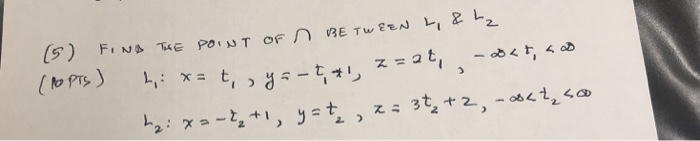 (5) FIND THE POINT OF ∩ BETWEEN L₁ & L₂
(10 PTS) L₁: x = t₁, y = -t₁+1, z = 2t₁, -∞<t₁<∞
L₂: x = -t₂+1, y = t₂, z = 3t₂+2, -∞<t₂<∞